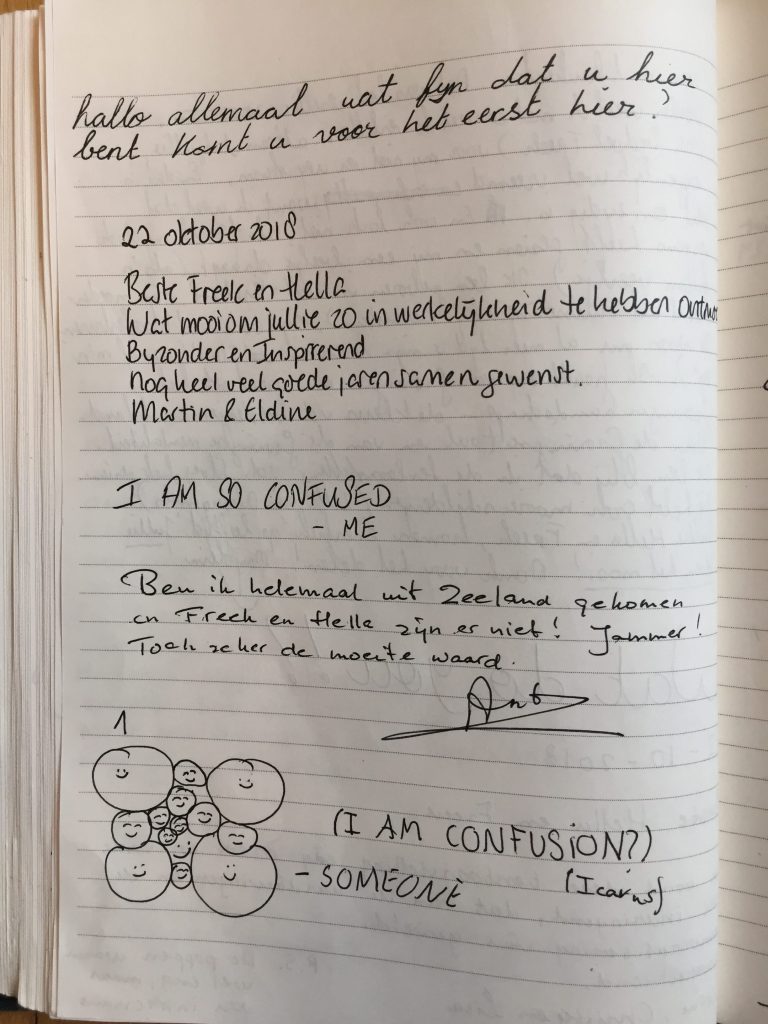 hallo allemaal wat fijn dat u hier
bent Komt u voor het eerst hier?
22 oktober 2018
Beste Freek en Hella
Wat mooi om jullie zo in werkelijkheid te hebben
Byzonder en Inspirerend
nog heel veel goede jaren samen gewenst.
Martin & Eldine
I AM SO CONFUSED
- ME
Ben ik helemaal uit Zeeland gekomen
en Freek en Hella zijn er niet! Jammer!
Toch zeker de moeite waard.
1
(I AM CONFUSION?)
- SOMEONE
(Icarus)